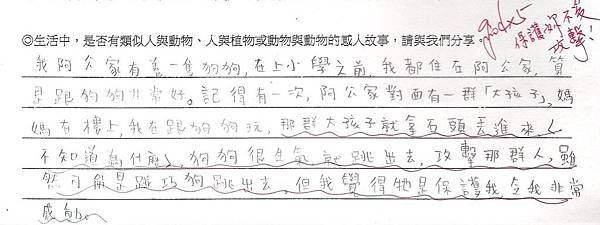 ◎生活中，是否有類似人與動物、人與植物或動物與動物的感人故事，請與我們分享。
good x5
保護妳不受
攻擊！
我阿公家有養一隻狗狗，在上小學之前，我都住在阿公家，算
是跟狗狗非常好。記得有一次，阿公家對面有一群「大孩子」，媽
媽在樓上，我在跟狗狗玩，那群大孩子就拿石頭丟進來，
不知道為什麼，狗狗很生氣就跳出去，攻擊那群人，雖
然可能是碰巧狗跳出去，但我覺得牠是保護我令我非常
感動。